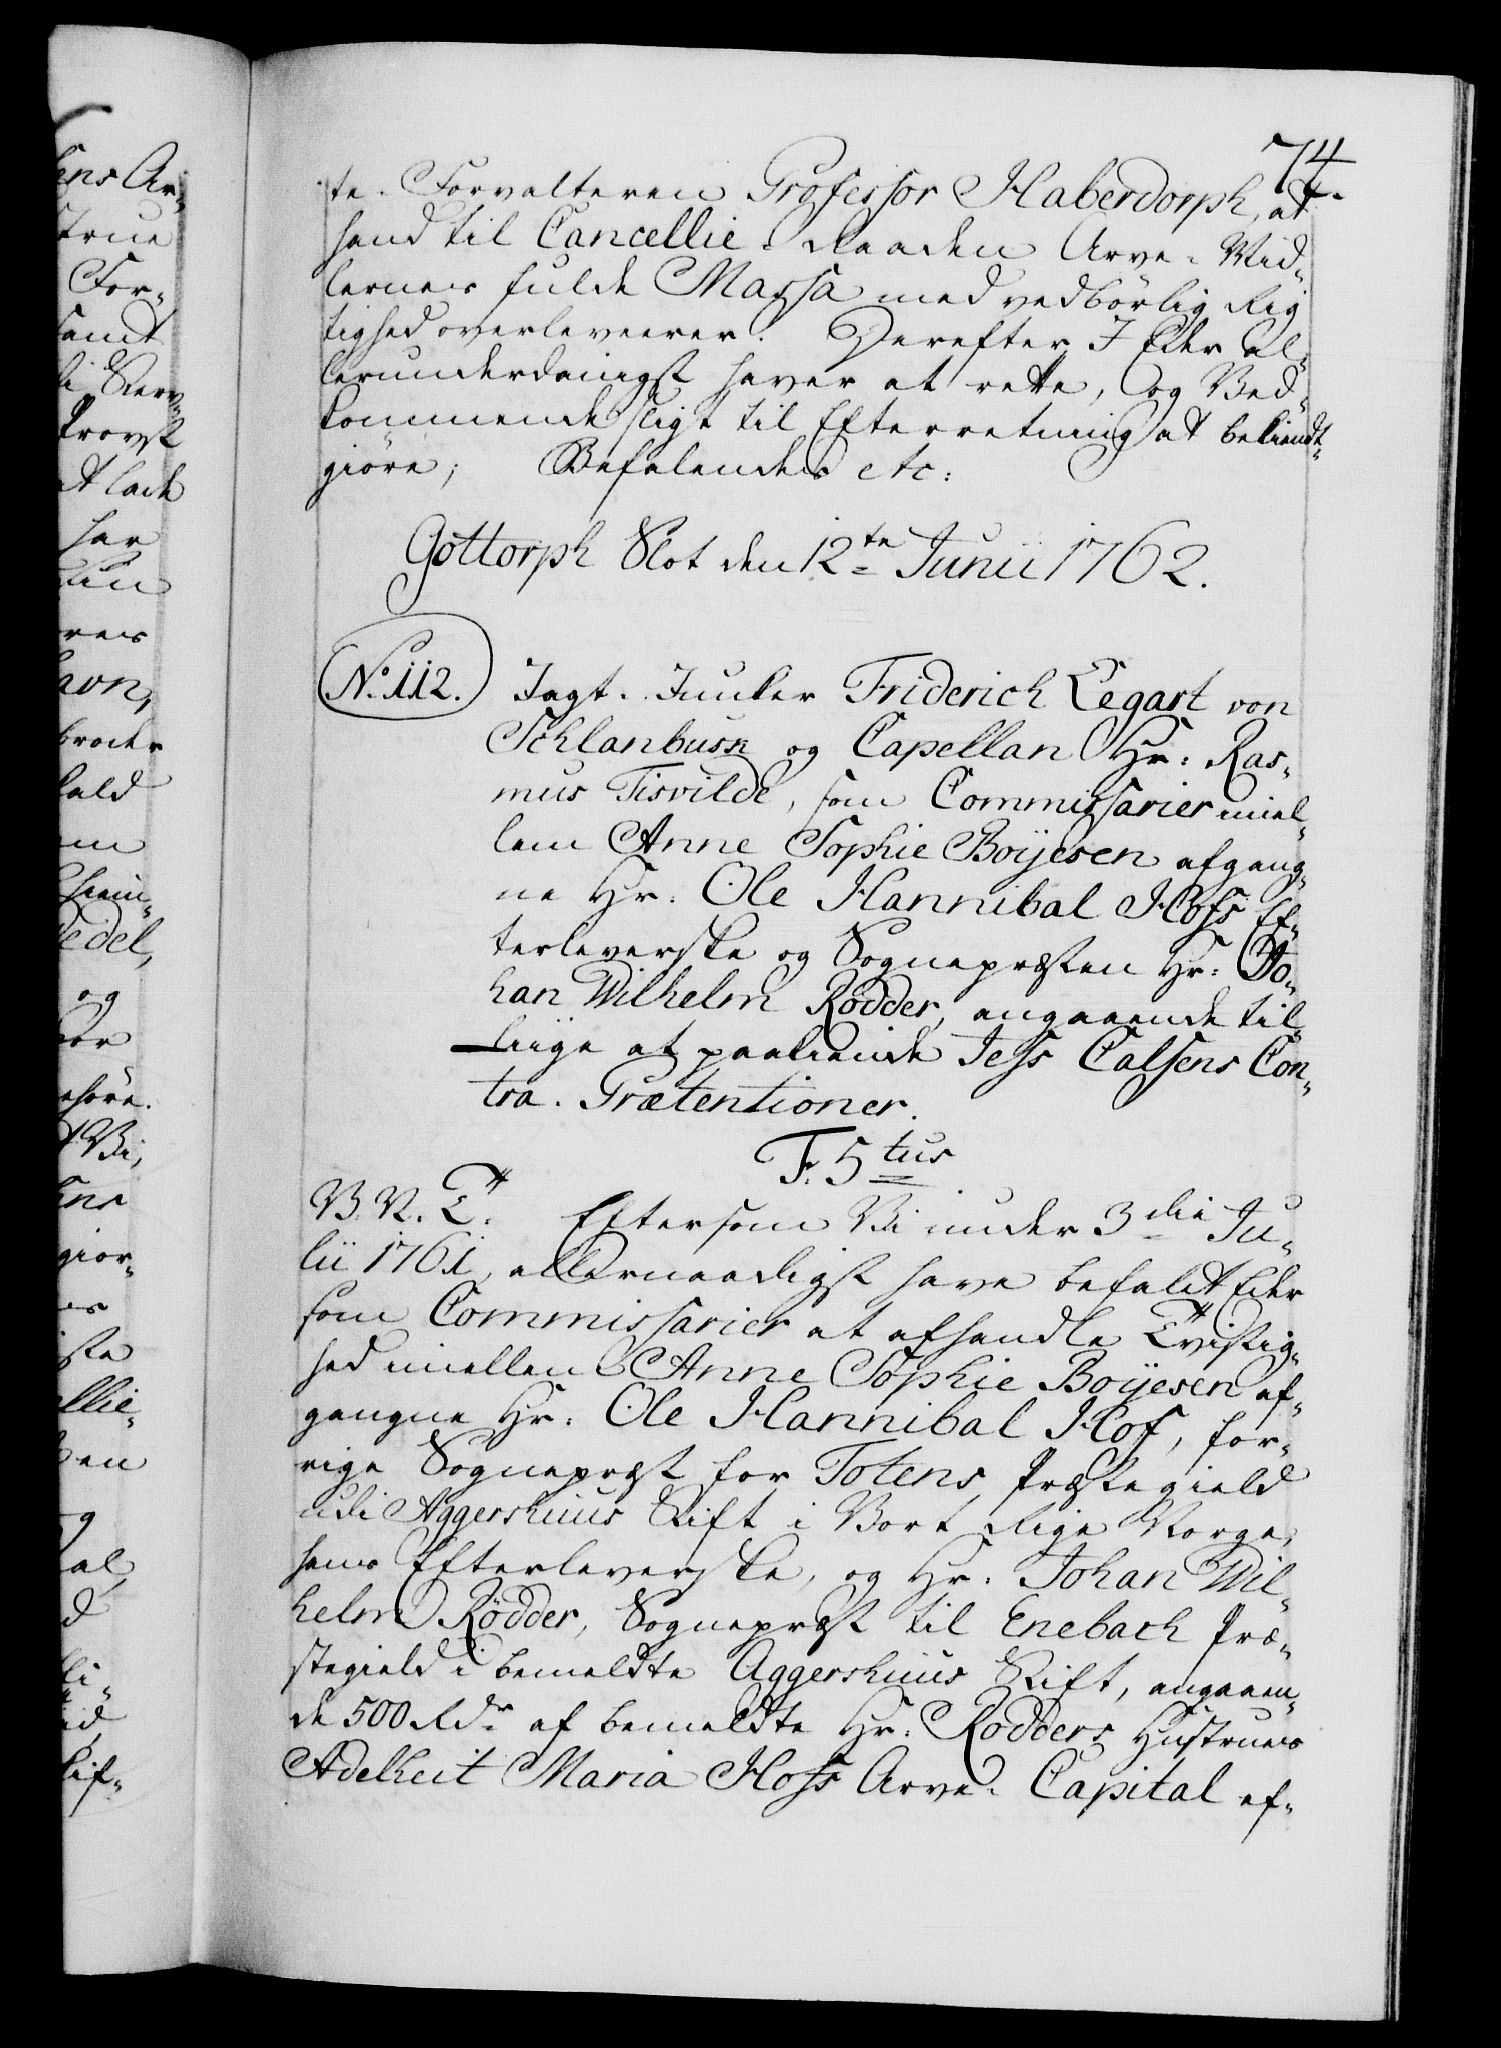 74.
te-Forvalteren Professor Haberdorph, at
hand til Cancellie-Raaden Arve-Mid-
lernes fulde Massa med vedbörlig Rig
tighed overleverer. Derefter I Eder al-
lerunderdanigst haver at rette, og Ved-
kommende sligt til Efterretning at bekiendt-
giöre; Befalendes etc:
Gottorph Slot den 12te Junii 1762.
No. 112. Jagt-Junker Friderich Legart von
Schlanbusk og Capellan Hr: Ras-
mus Tisvilde, som Commissarier miel-
lem Anne Sophie Boijesen afgang-
ne Hr. Ole Hannibal Hofs Ef-
terleverske og Sognepræsten Hr: Jo-
han Wilhelm Rödder, angaaende til-
liige at paakiende Jess Calsens Con-
tra-Prætentioner.
F. 5tus
V. V. T. Eftersom Vi under 3die Ju-
lii 1761, allernaadigst have befalet Eder
som Commissarier at afhandle Tvistig-
hed imellem Anne Sophie Boijesen af-
gangne Hr: Ole Hannibal Hof, for-
rige Sognepræst for Totens Præstegield
udi Aggershuus Stift i Vort Rige Norge,
hans Efterleverske, og Hr. Johan Wil-
helm Rödder, Sognepræst til Enebach Præ-
stegield i bemeldte Aggershuus Stift, angaaen-
de 500 Rdr af bemeldte Hr: Rödders Hustrues
Adelheit Maria Hofs Arve-Capital ef-